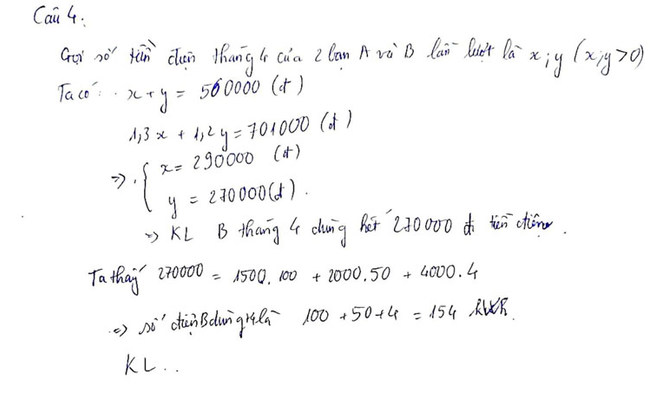 Câu 4:
Gọi số tiền điện tháng 4 của 2 bạn A và B lần lượt là x; y (x;y>0)
Ta có: x+y = 560000 (đ)
1,3x + 1,2y = 701000 (đ)
=> { x = 290000 (đ)
y = 270000(đ).
=> KL B tháng 4 dùng hết 270000 đ tiền điện.
Ta thấy 270000 = 1500.100 + 2000.50 + 4000.4
=> số điện B dùng là 100 +50+4 = 154 kWh.
KL..